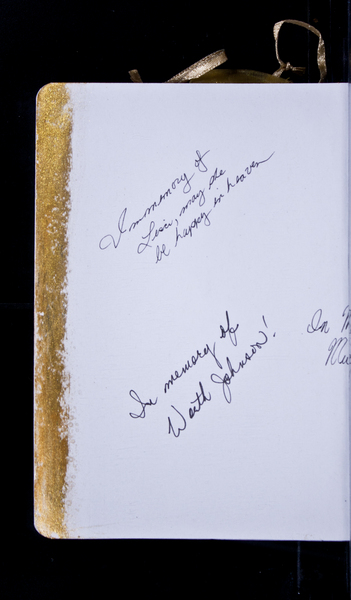 In memory of
Lesci, may she
be happy in heaven
In memory of
Waith Johnson!
In